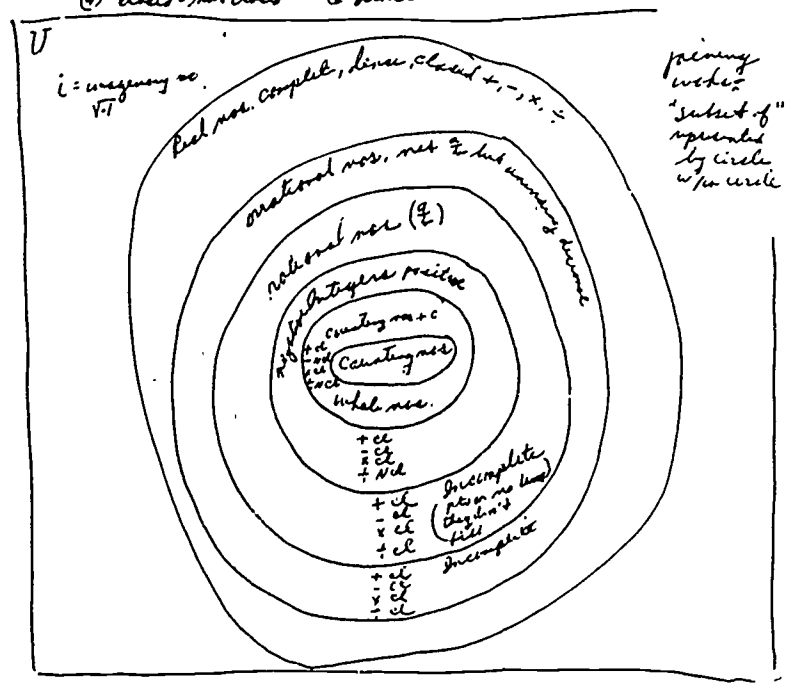 U
i = imaginary no.
√-1
Real nos. complete, dense, closed +, -, x, ÷
irrational nos, not a/b but unending decimal
rational nos (a/b)
negative Integers positive
Counting nos + 0
+ cl
- ncl
x cl
÷ ncl
Counting nos
Whole nos.
+ cl
- cl
x cl
÷ Ncl
+ cl
- cl
x cl
÷ cl
Incomplete
pts on no line
they don't
fill
+ cl
- cl
x cl
÷ cl
Incomplete
joining
"subset of"
represented
by circle
w/in circle